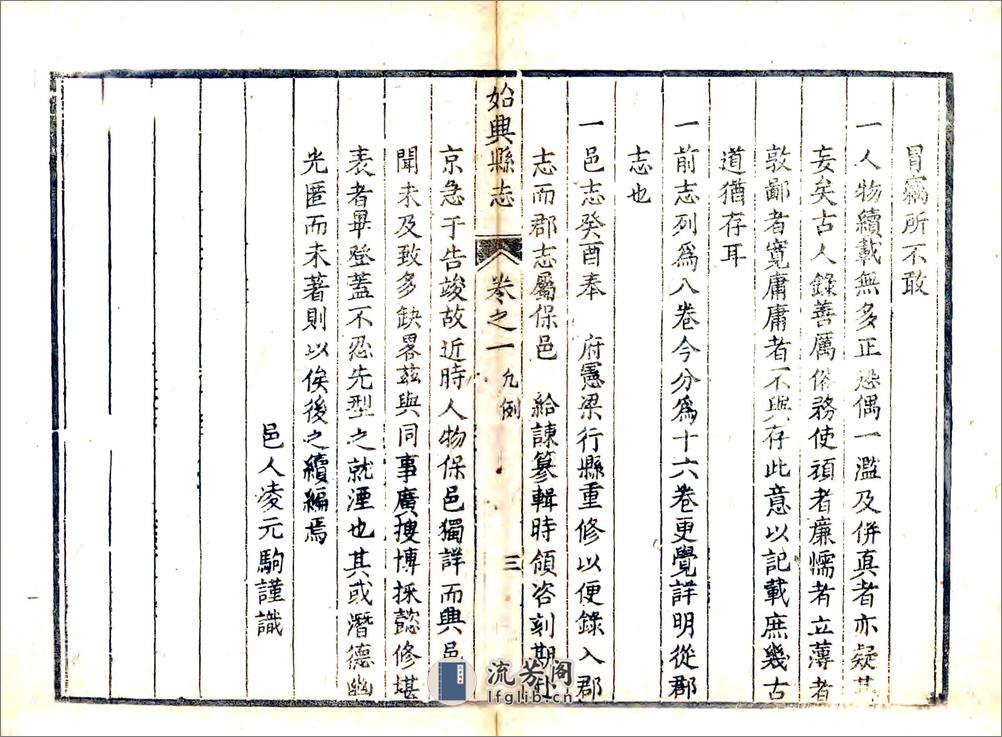 冒竊所不敢
一人物續載無多正恐偶一濫及併真者亦疑其
妄矣古人錄善厲俗務使頑者廉懦者立薄者
敦鄙者寬庸庸者不與存此意以記載庶幾古
道猶存耳
一前志列爲八卷今分爲十六卷更覺詳明從郡
志也
一邑志癸酉奉 府憲梁行縣重修以便錄入郡
志而郡志屬保邑 給諫篹輯時領咨刻期赴
京急于告竣故近時人物保邑獨詳而興邑
聞未及致多缺畧茲與同事廣搜博採懿修堪
表者畢登蓋不忍先型之就湮也其或潛德幽
光匿而未著則以俟後之續編焉
邑人凌元駒謹識
始興縣志 卷之一 凡例 三
流芳阁
lfglib.cn